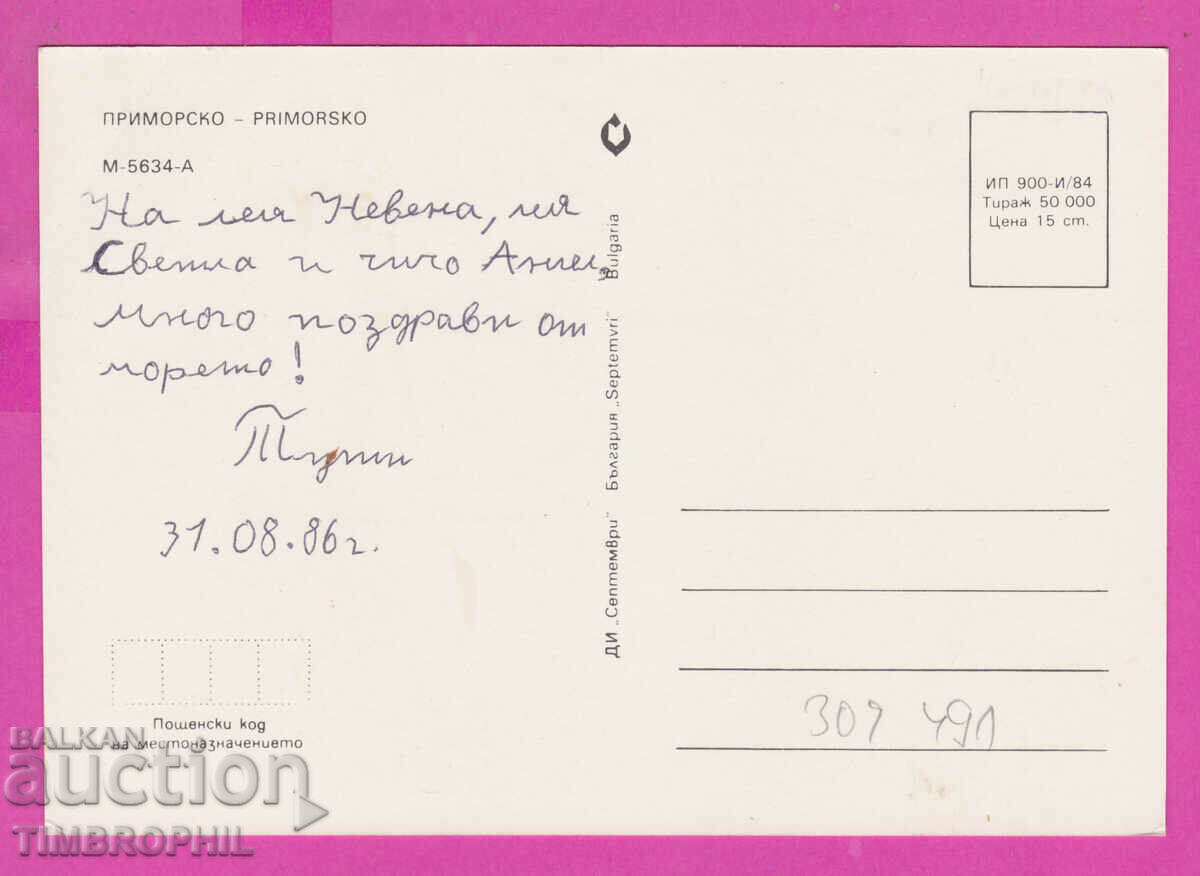 ПРИМОРСКО – PRIMORSKO
М-5634-А
На леля Невена, ля
Светла и чичо Ангел,
много поздрави от
морето!
31.08.86г.
Пощенски код
на местоназначението
ДИ „Септември" България „Septemvri" Bulgaria
ИП 900-И/84
Тираж 50 000
Цена 15 ст.
309 491
BALKAN
auction
TIMBROPHIL